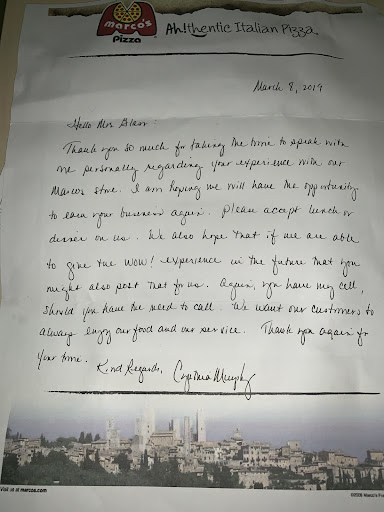 MARCO'S
Pizza
Ah!thentic Italian Pizza
March 8, 2019
Hello Mrs.
Thank you so much for taking the time to speak with
me personally regarding your experience with our
Marcos store. I am hoping we will have the opportunity
to earn your business again. Please accept lunch or
dinner on us. We also hope that if we are able
to give the WOW! experience in the future that you
might also post that for us. Again, you have my cell,
should you have the need to call. We want our customers to
always enjoy our food and our service. Thank you again for
your time.
Kind Regards, Murphy
Visit us at marcos.com